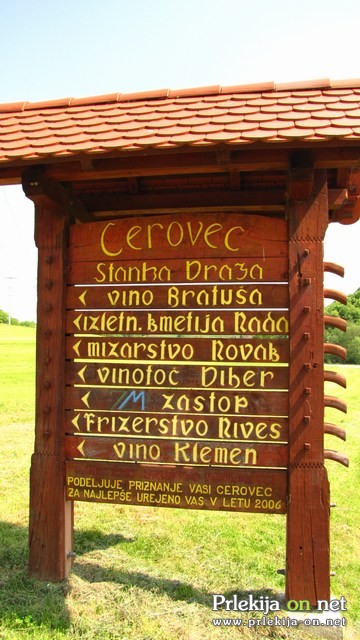 Cerovec
Stanka Vraza
vino Bratuša
izletn. kmetija Rada
mizarstvo Novak
vinotoč Viber
zastop
frizerstvo Rives
vino Klemen
PODELJUJE PRIZNANJE VASI CEROVEC
ZA NAJLEPŠE UREJENO VAS V LETU 2006
Prlekija on net
www.prlekija-on.net